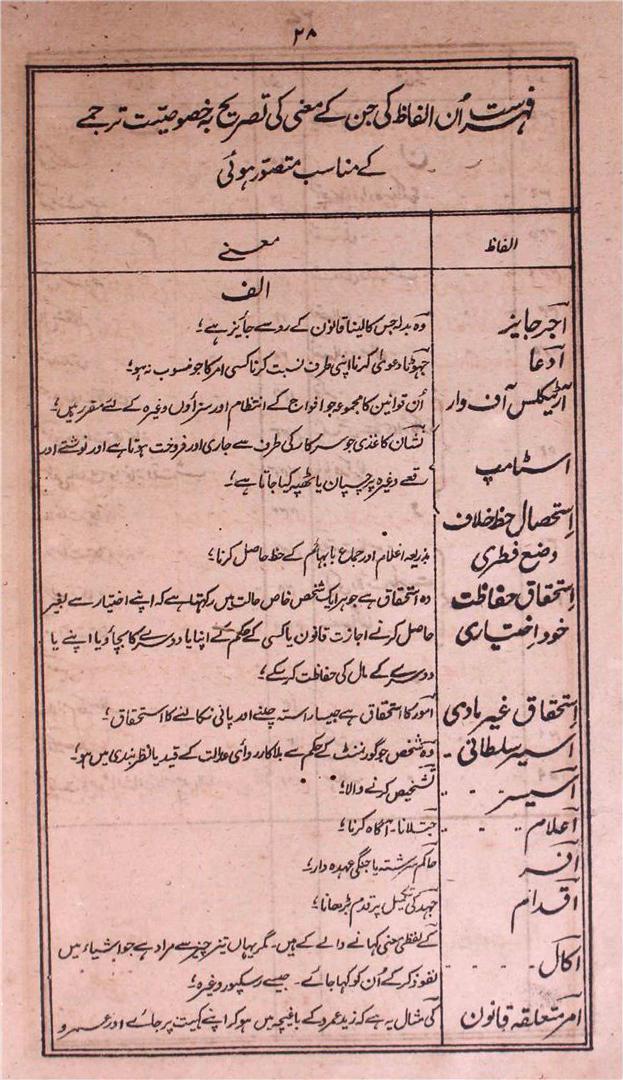 ۲۸
فہرست اُن الفاظ کی جن کے معنی کی تصریح بہ خصوصیّت ترجمے
کے مناسب متصوّر ہوئی
الفاظ معنے
الف
اَجر جایز وہ بدلہ جس کا لینا قانون کے رو سے جائز ہے؛
اِدّعا جہوٹا دعویٰ کرنا اپنی طرف نسبت کرنا کسی امر کا جو منسوب نہ ہو؛
آرٹیکلس آف وار اُن قوانین کا مجموعہ جو افواج کے انتظام اور سزاؤں وغیرہ کے لئے مقرر ہیں؛
اسٹامپ نشان کاغذی جو سرکار کی طرف سے جاری اور فروخت ہوتا ہے اور نوشتے اور
رقعے وغیرہ پر چسپان یا ٹھپہ کیا جاتا ہے؛
اِستحصال حظ خلاف
وضع فطری بذریعہ اغلام اور جماع با بہائم کے حظ حاصل کرنا؛
اِستحقاق حفاظت وہ استحقاق ہے جو ہر ایک شخص خاص حالت میں رکہتا ہے کہ اپنے اختیار سے بغیر
خود اختیاری حاصل کرنے اجازت قانون یا کسی کے حکم کے اپنا یا دوسرے کا بچاؤ یا اپنے یا
دوسرے کے مال کی حفاظت کر سکے؛
اِستحقاق غیر مادی امور کا استحقاق ہے جیسا راستہ چلنے اور پانی نکالنے کا استحقاق؛
اسیر سلطانی - وہ شخص جو گورنمنٹ کے حکم سے بلا کارروائی عدالت کے قید یا نظربندی میں ہو؛
اسیسر - - تشخیص کرنے والا؛
اعلام - - جتلانا - آگاہ کرنا؛
افسر حاکم سررشتہ یا جنگی عہدہ دار؛
اقدام جہد کی تکمیل پر قدم بڑھانا؛
اکال - - - کے لفظی معنی کہانے والے کے ہیں - مگر یہاں تیز چیز سے مراد ہے جو اشیاء میں
نفوذ کر کے اُن کو کہا جائے - جیسے رسکپور وغیرہ؛
اَمر متعلقہ قانون کی مثال یہ ہے کہ زید عمرو کے باغیچہ میں ہو کر اپنے کہیت پر جائے اور عمرو